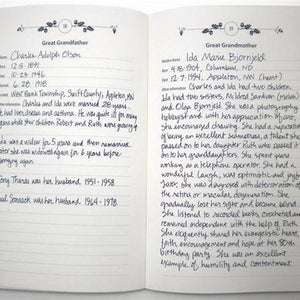 Great Grandfather
Name: Charles Adolph Olson
12-3-1891
10-23-1946
6-28-1918
West Bank Township, Swift County, Appleton, MN
Charles and Ida were married 28 years.
had heart disease and asthma. He was quite ill for many
years while their children Robert and Ruth were growing
Ida was a widow for 5 years and then remarried.
later she was widowed again for 6 years before
marrying again.
Tony Thoras was her husband 1951-1958.
Paul was her husband 1964-1978.
39
Great Grandmother
Ida Marie Bjornjeld
4-18-1904, Columbus, ND
12-7-1994, Appleton, MN (heart)
Charles and Ida had two children.
Ida had two sisters, Mildred Sandven (nester)
and Olga Bjornjeld. She was a photography
hobbyist and with her appreciation of art,
she encouraged drawing. She had a reputation
being an excellent seamstress, a talent she
passed on to her daughter Ruth who passed it
on to her granddaughters. She spent years
working as a telephone operator. She had a
wonderful laugh, was optimistic and joyful
later, she was diagnosed with deterioration of
the retina or macular degeneration. She
gradually lost her sight and became blind.
She listened to recorded books, crocheted and
remained independent with the help of Ruth.
She eloquently shared her evangelistic heart,
faith, encouragement and hope at her 80th
birthday party. She was an excellent
example of humility and contentment.